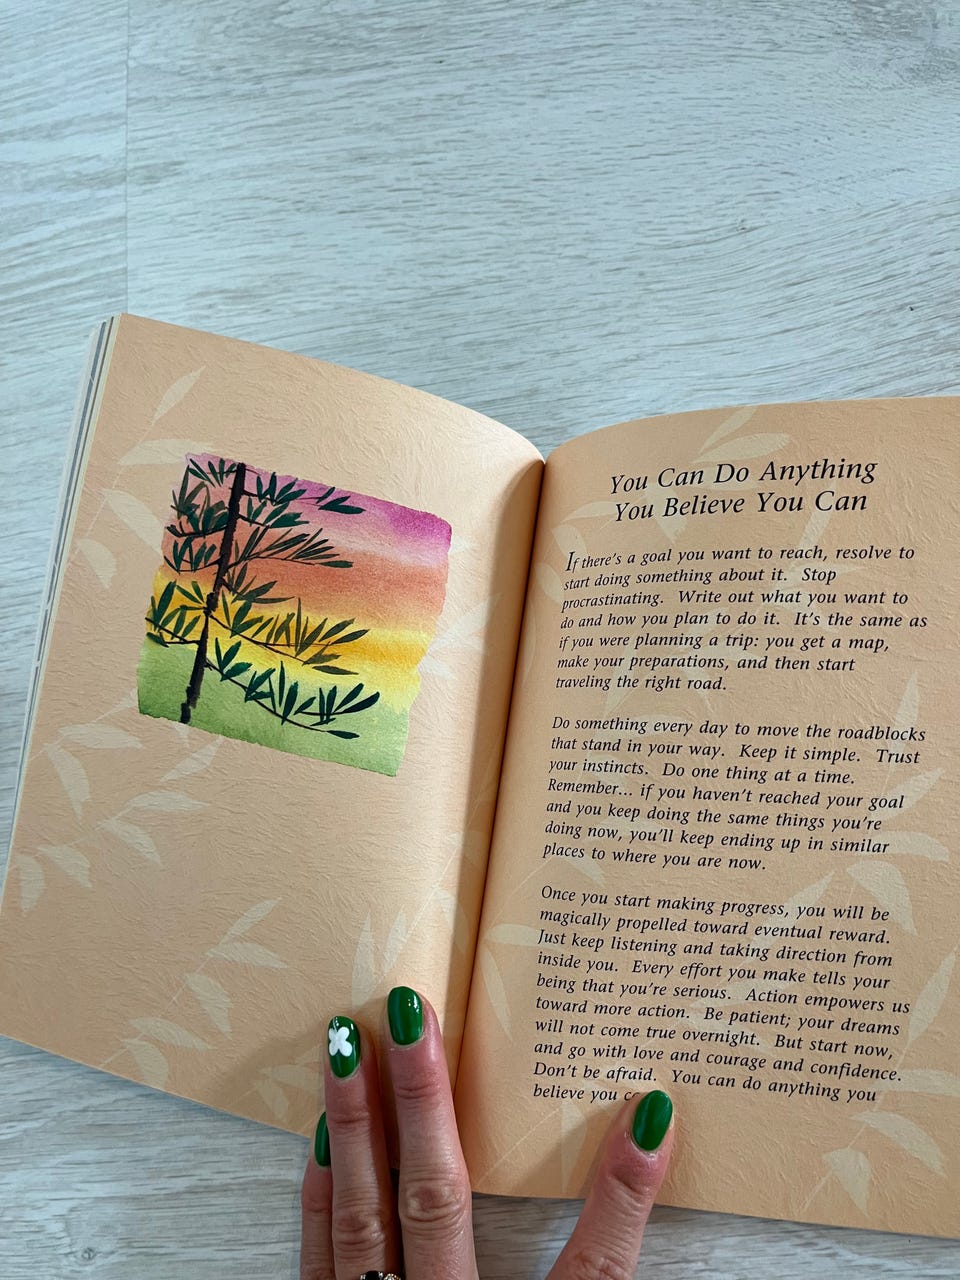 You Can Do Anything
You Believe You Can
If there's a goal you want to reach, resolve to
start doing something about it. Stop
procrastinating. Write out what you want to
do and how you plan to do it. It's the same as
if you were planning a trip: you get a map,
make your preparations, and then start
traveling the right road.
Do something every day to move the roadblocks
that stand in your way. Keep it simple. Trust
your instincts. Do one thing at a time.
Remember... if you haven't reached your goal
and you keep doing the same things you're
doing now, you'll keep ending up in similar
places to where you are now.
Once you start making progress, you will be
magically propelled toward eventual reward.
Just keep listening and taking direction from
inside you. Every effort you make tells your
being that you're serious. Action empowers us
toward more action. Be patient; your dreams
will not come true overnight. But start now,
and go with love and courage and confidence.
Don't be afraid. You can do anything you
believe you